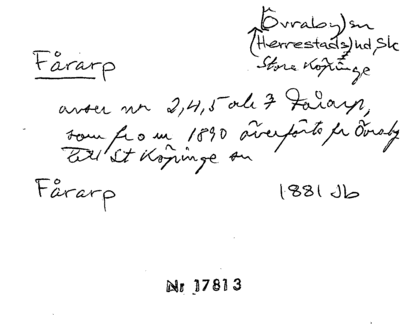 Övraby sn
(Herrestads) hd, Sk
Stora Köpinge
Fårarp
avser nr 2,4,5 och 7 Fårarp,
som fr o m 1890 överförts fr Övraby
till St Köpinge sn
Fårarp 1881 Jb
Nr 17813